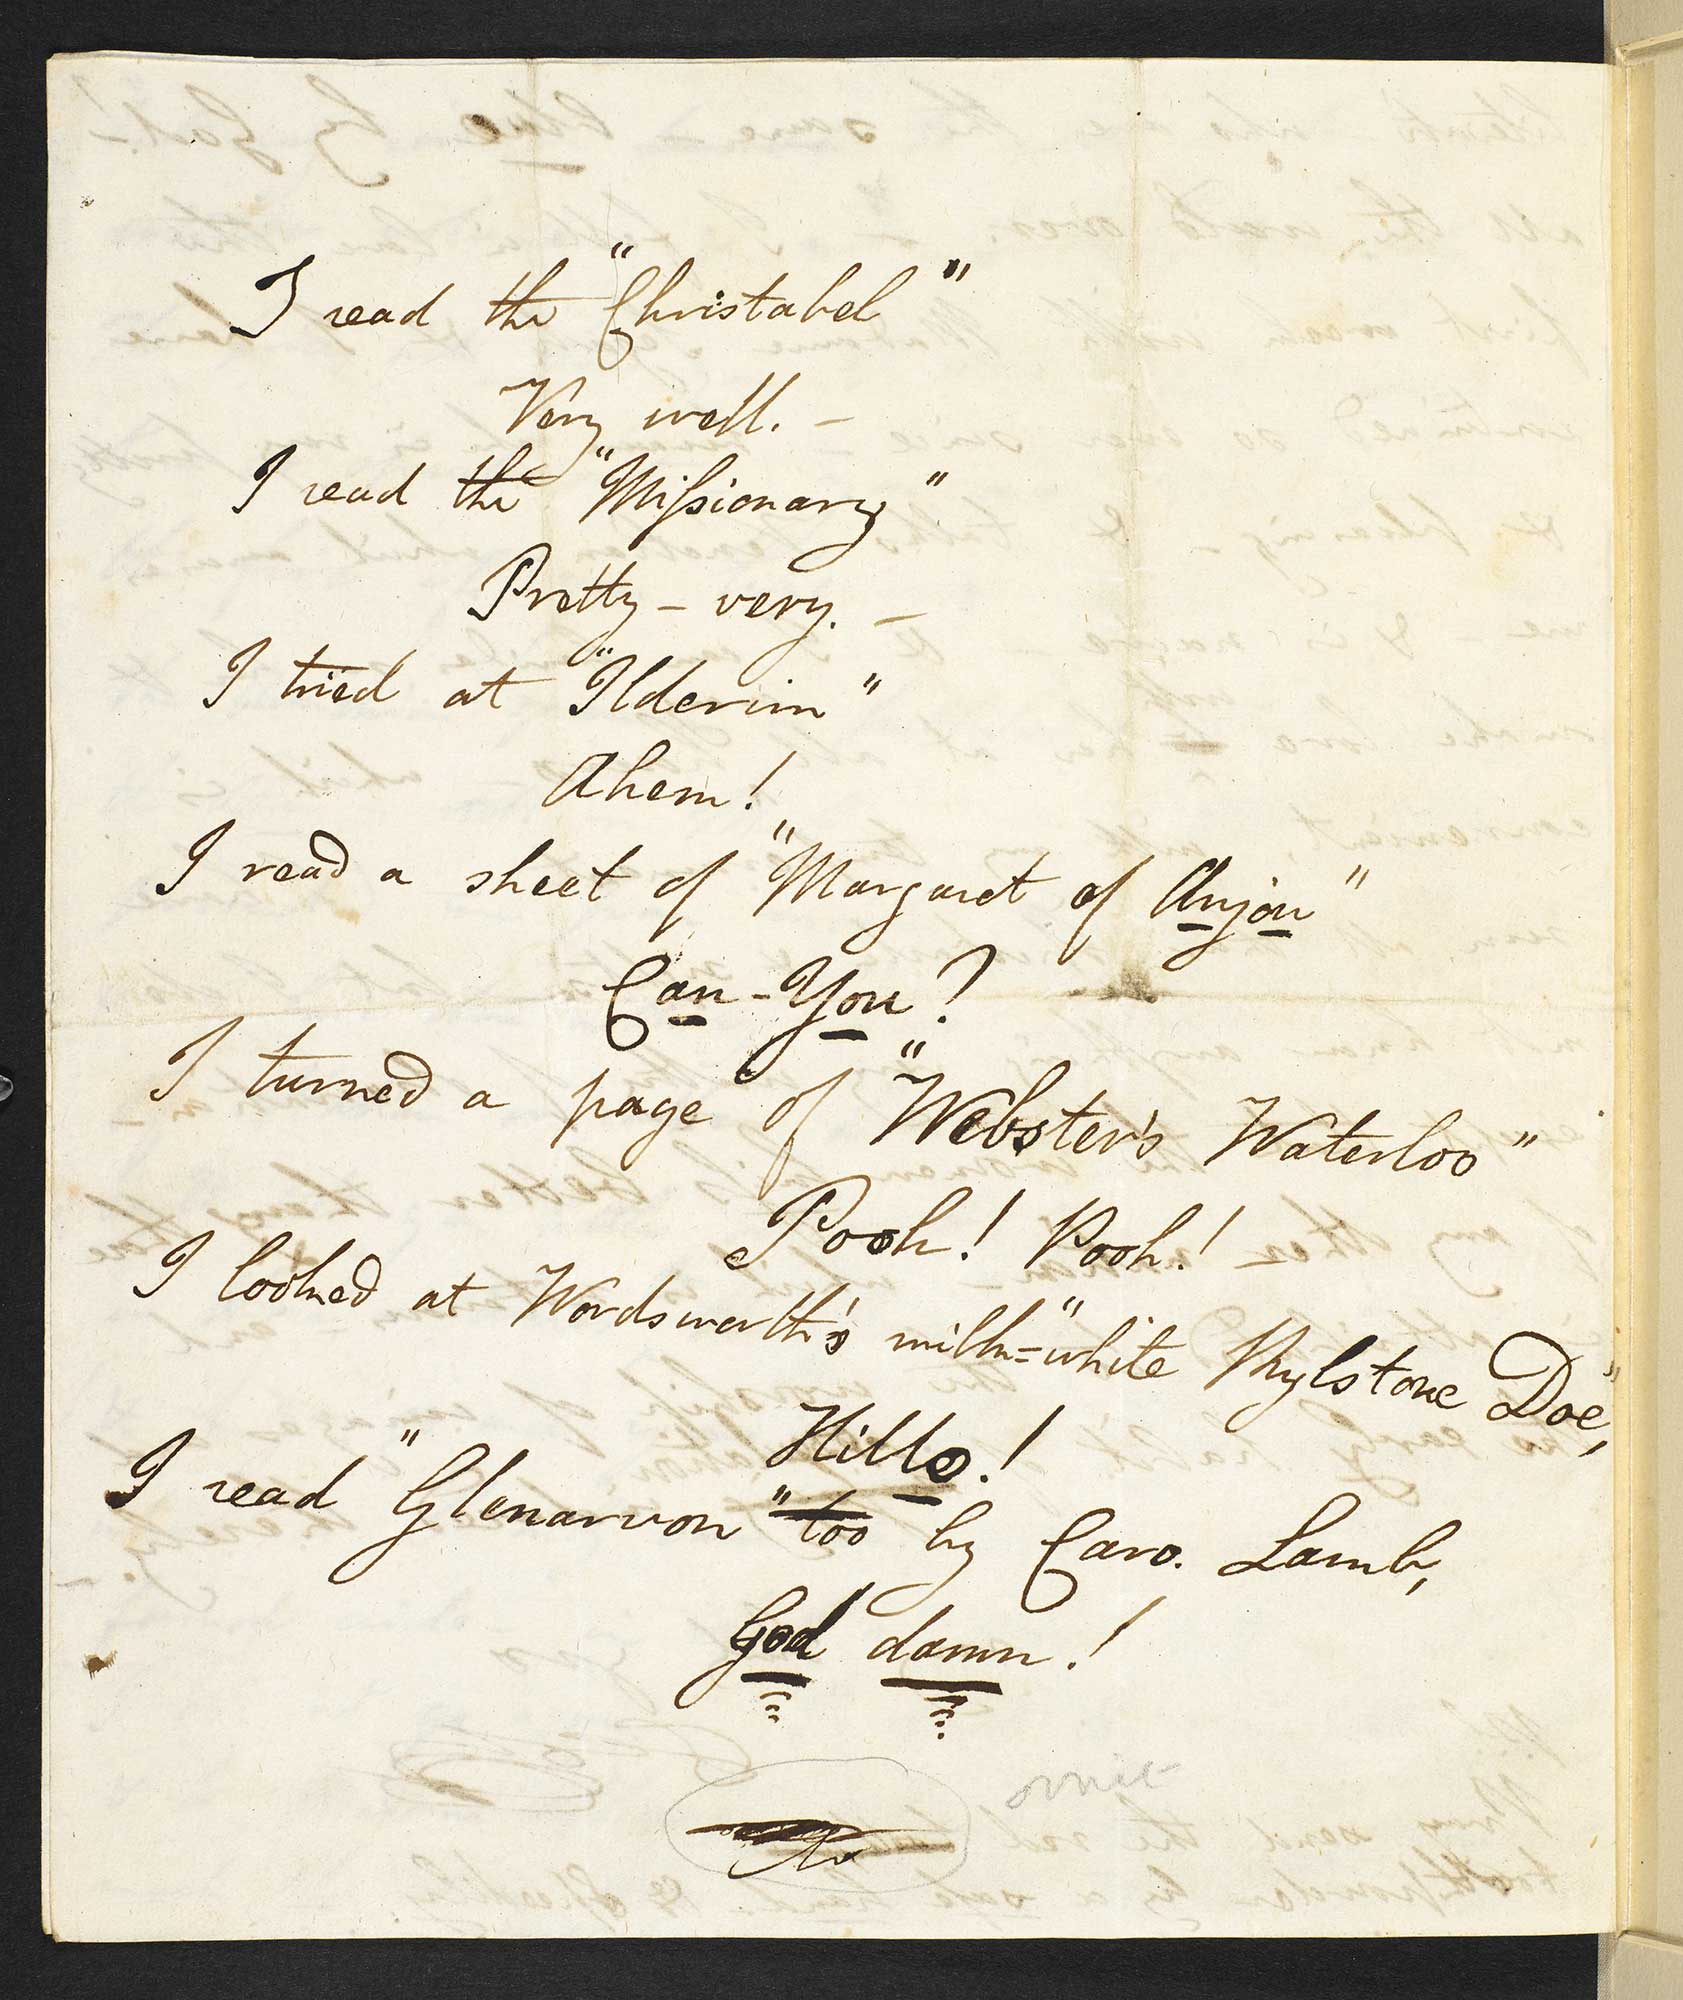 I read the "Christabel"
Very well. –
I read the "Missionary"
Pretty – very. –
I tried at "Ilderim"
Ahem!
I read a sheet of "Margaret of Anjou"
Can – You?
I turned a page of "Webster's Waterloo"
Pooh! Pooh!
I looked at Wordsworth's milk = "white Rylstone Doe",
Hillo!
I read "Glenarvon" too by Caro. Lamb,
God damn!
omit